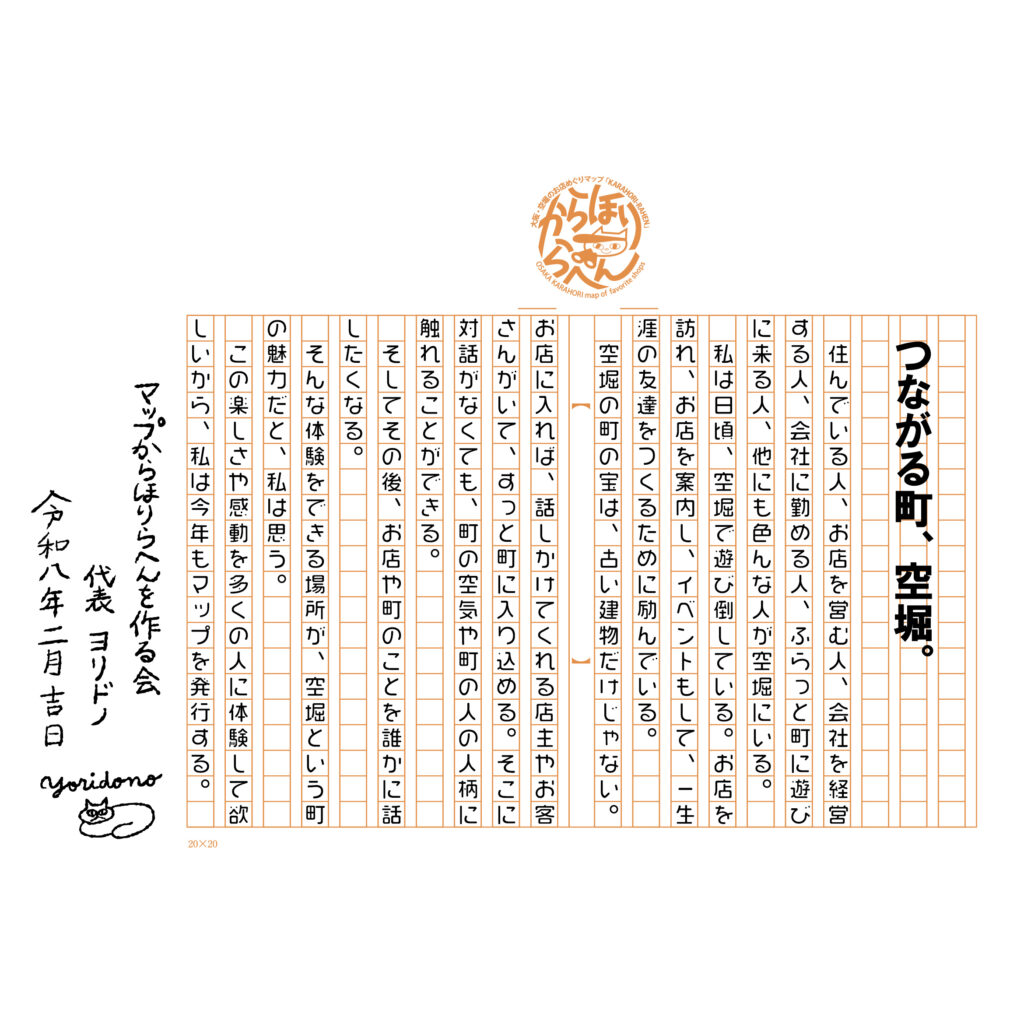 大阪・空堀のお店めぐりマップ「KARAHORI-RAHEN」
からほり
らへん
OSAKA KARAHORI map of favorite shops
つながる町、空堀。
住んでいる人、お店を営む人、会社を経営
する人、会社に勤める人、ふらっと町に遊び
に来る人、他にも色んな人が空堀にいる。
私は日頃、空堀で遊び倒している。お店を
訪れ、お店を案内し、イベントもして、一生
涯の友達をつくるために励んでいる。
空堀の町の宝は、古い建物だけじゃない。
お店に入れば、話しかけてくれる店主やお客
さんがいて、すっと町に入り込める。そこに
対話がなくても、町の空気や町の人の人柄に
触れることができる。
そしてその後、お店や町のことを誰かに話
したくなる。
そんな体験をできる場所が、空堀という町
の魅力だと、私は思う。
この楽しさや感動を多くの人に体験して欲
しいから、私は今年もマップを発行する。
20×20
マップからほりらへんを作る会
代表 ヨリドノ
令和八年二月吉日
yoridono